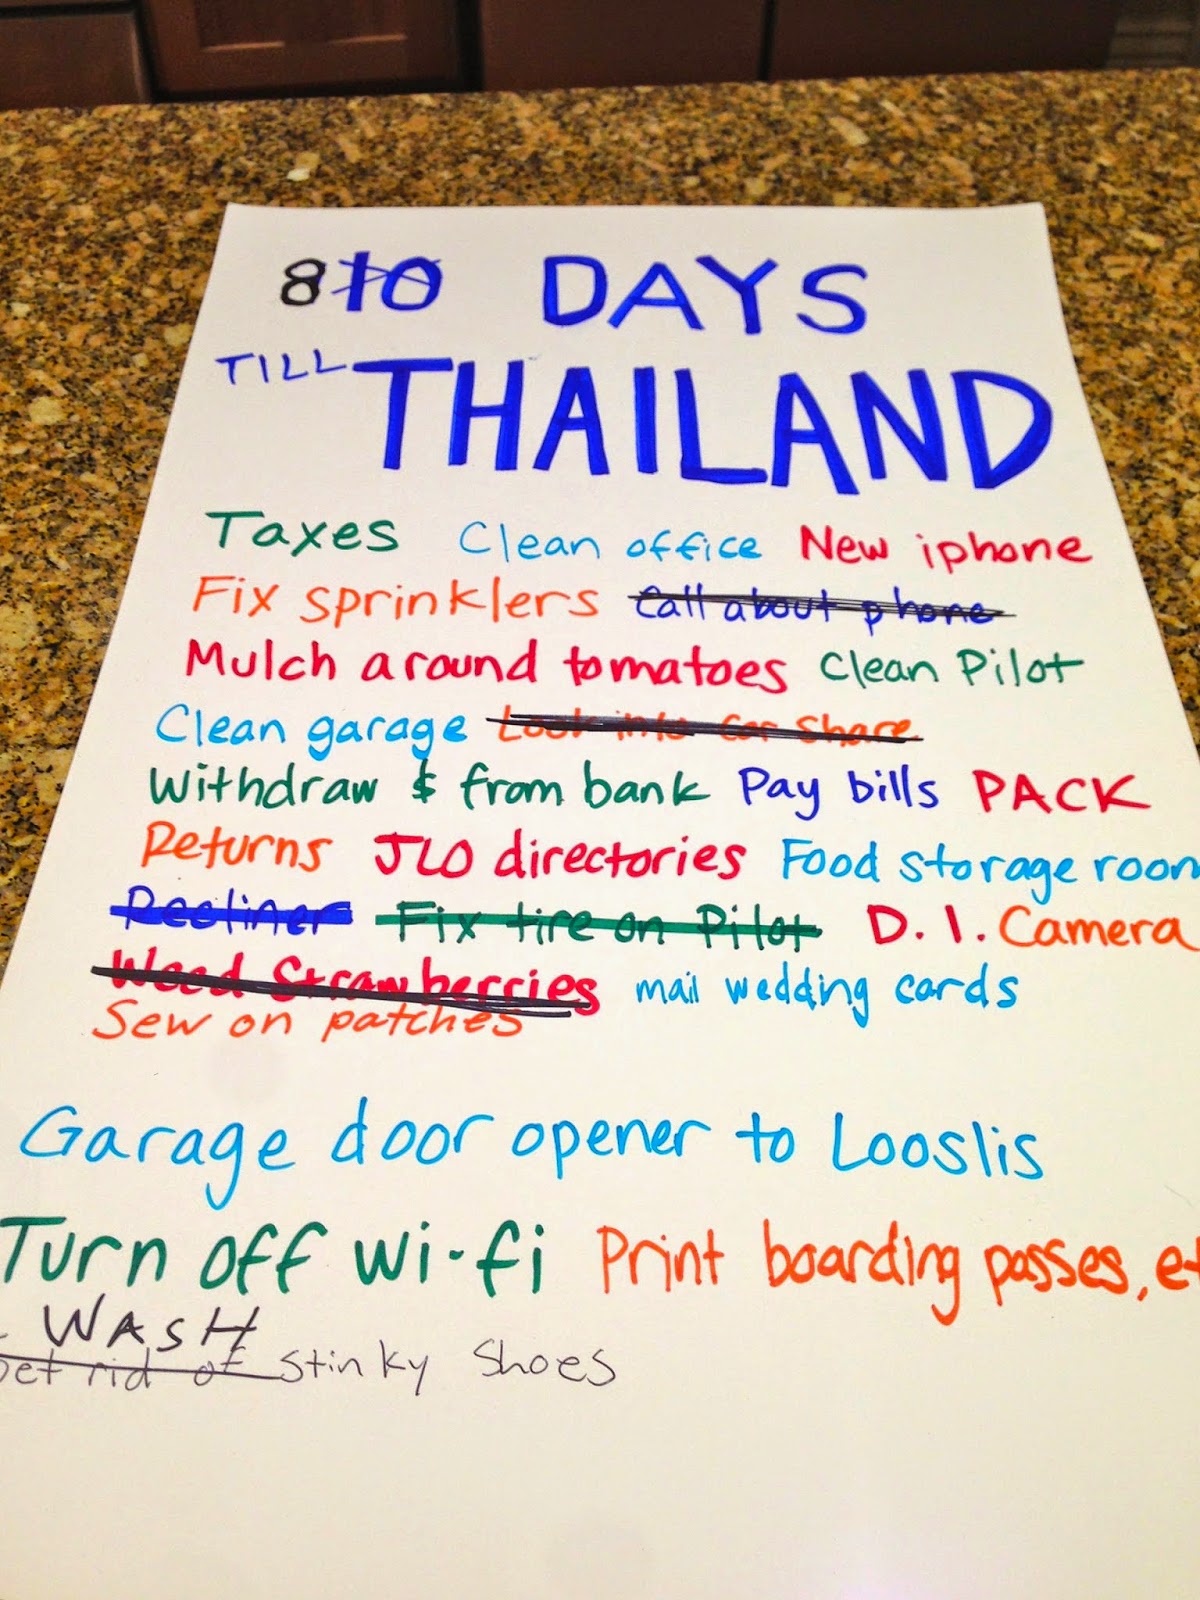 8 10 DAYS
TILL THAILAND
Taxes Clean office New iphone
Fix sprinklers Call about phone
Mulch around tomatoes Clean Pilot
Clean garage Look into Car Share
Withdraw $ from bank Pay bills PACK
Returns JLO directories Food storage room
Recliner Fix tire on Pilot D.I. Camera
Weed Strawberries mail wedding cards
Sew on patches
Garage door opener to Looslis
Turn off wi-fi Print boarding passes, et
WASH
Get rid of stinky shoes